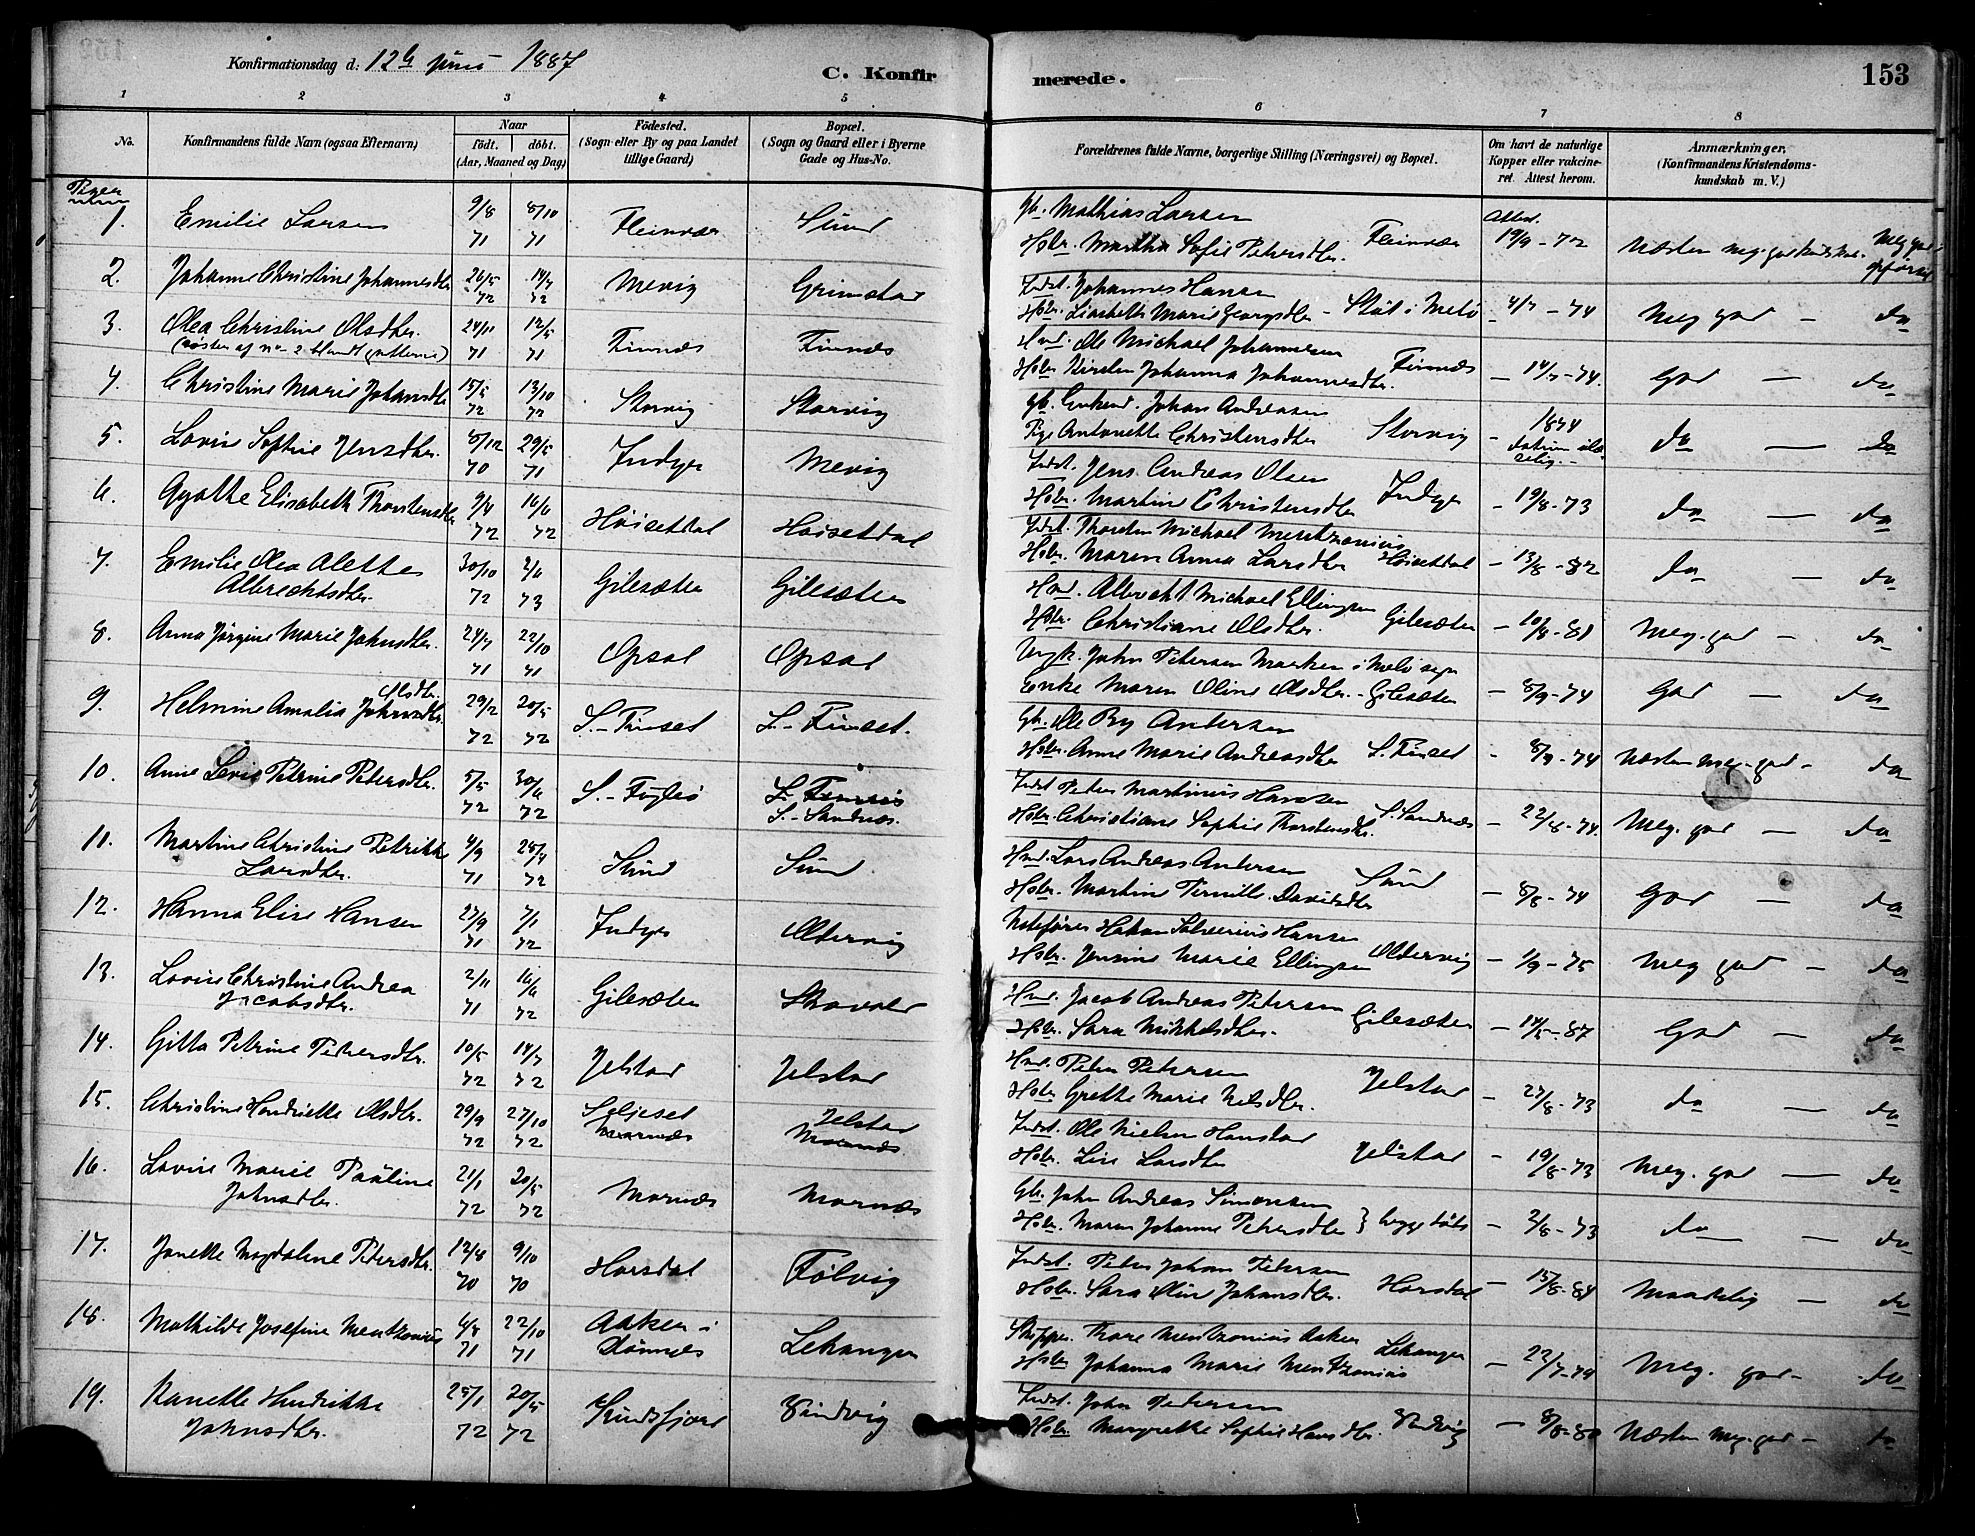 Konfirmationsdag d: 12te Juni 1887
C. Konfirmerede.
153
1 2 3 4 5 6 7 8
No.
Konfirmandens fulde Navn (ogsaa Efternavn)
Naar
födt. döbt.
(Aar, Maaned og Dag)
Födested.
(Sogn eller By og paa Landet
tillige Gaard)
Bopæl.
(Sogn og Gaard eller i Byerne
Gade og Hus-No.
Forældrenes fulde Navne, borgerlige Stilling (Næringsvei) og Bopæl.
Om havt de naturlige
Kopper eller vakcine-
ret. Attest herom.
Anmærkninger.
(Konfirmandens Kristendoms-
kundskab m. V.)
Piger
1. Emilie Larsen 9/8 71 8/10 71 Fleinvær Sund Gb. Mathias Larsen
Hstr. Martha Sofie Petersdtr. Fleinvær Attest. 19/9-72 Næsten meg. god kundskab. Meg god
2. Johanne Christine Johannesdtr 26/5 72 14/7 72 Mevig Grimstad Indst. Johannes Hansen
Hstr. Lisabeth Marie Georgsdtr - Støt i Melø - 4/7-74 Meg god - do
3. Olea Christine Olsdtr. 24/11 71 12/5 71 Finnæs Finnæs Hmd. Ole Michael Johannesen
(søster af no 2 blandt gutterne) Hstr Kirsten Johanna Johannesdtr. Finnæs - 14/7-74. God - do
4. Christine Marie Johansdtr 15/5 72 13/10 72 Storvig Storvig Gb. Enkemd. Johan Andreasen
Pige Antonette Christensdtr Storvig - 1874 do - do
5. Lovise Sophie Jensdtr. 8/12 70 29/5 71 Indyr Mevig Indst. Jens Andreas Olsen
Hstr. Martine Christensdtr Indyr - 19/8-73 do - do
6. Agathe Elisabeth Thorstensdtr 9/4 72 16/6 72 Høisetdal Høisetdal Indst. Thorsten Michael Mentzonius
Hstr. Maren Anna Larsdtr Høisetdal - 13/8-82 do - do
7. Emilie Olea Alette 30/10 72 2/6 73 Gilesæter Gilesæter Hmd. Albrecht Michael Ellingsen
Albrechtsdtr. Hstr. Christiane Olsdtr. Gilesæter - 10/8-81 Meg. god - do
8. Anna Jørgine Marie Johnsdtr. 24/7 71 22/10 71 Opsal Opsal Ungk. John Petersen Marken i Melø sogn
Enke Maren Oline Olsdtr. - Gilesæter - 8/9-74 God - do
9. Helmine Amalia Johnsdtr Olsdtr. 29/2 72 20/5 72 S.- Finset S.- Finset. Gb. Ole By Andersen
Hstr. Anne Marie Andreasdtr S. Finset - 8/9-74 Næsten meg. god - do
10. Anne Lovise Petrine Petersdtr. 5/5 72 30/6 72 S.- Fuglø S.- Sandnæs. Indst Peter Martinus Hansen
Hstr. Christiane Sophie Thorstensdtr. S. Sandnæs - 22/8-74. Meg. god - do
11. Martine Christine Petrikke 4/9 71 25/4 72 Sund Sund Hmd. Lars Andreas Andersen
Larsdtr. Hstr. Martine Pernille Davidsdtr Sund - 8/8-74 God - do
12. Hanna Elise Hansen 27/9 71 7/1 72 Indyr Oldervig Notefører Hakon Silverius Hansen
Hstr. Jensine Marie Ellingsen Oldervig - 1/9-75 Meg god - do
13. Lovise Christine Andrea 2/11 71 16/6 72 Gilesæter Skavold Hmd. Jacob Andreas Petersen
Jacobsdtr. Hstr. Sara Mikkelsdtr. Gilesæter - 14/5-87 God - do
14. Gitta Petrine Petersdtr. 10/5 72 14/7 72 Jelstad Jelstad Hmd. Peter Petersen
Hstr. Grethe Marie Nelsdtr. Jelstad - 27/8-73 do - do
15. Christine Hendriette Olsdtr. 29/9 72 27/10 72 Seljeset Jelstad
Indst. Ole Nielsen Hanstad
Hstr. Lise Larsdtr Jelstad - 19/8-73 Meg. god - do
16. Lovise Marie Pauline 21/1 72 20/5 72 Mornæs Mornæs Gb. John Andreas Simonsen
Johnsdtr. Hstr. Maren Johanne Petersdtr } begge døde - 2/8-73 do - do
17. Janette Magdalene Petersdtr. 12/4 70 9/10 70 Horsdal Følvig Indst. Peter Johan Petersen
Hstr. Sara Oline Johansdtr. Horsdal - 15/8-84 Maadelig - do
18. Mathilde Josefine Mentzonius 4/8 71 22/10 71 Aaker i Dønnæs Lekanger Skipper Thore Mentzonius Aaker
Hstr Johanna Marie Mentzonius Lekanger - 22/7-74 Meg. god - do
19. Nanette Hendrikke 25/1 72 20/5 72 Sundsfjord Vindvig Indst. John Petersen
Johnsdtr. Hstr. Margrethe Sophie Hansdtr. Vindvig - 8/8-80 Næsten meg. god - do